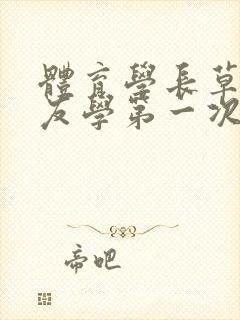 體育學長草
友學第一次
帝吧